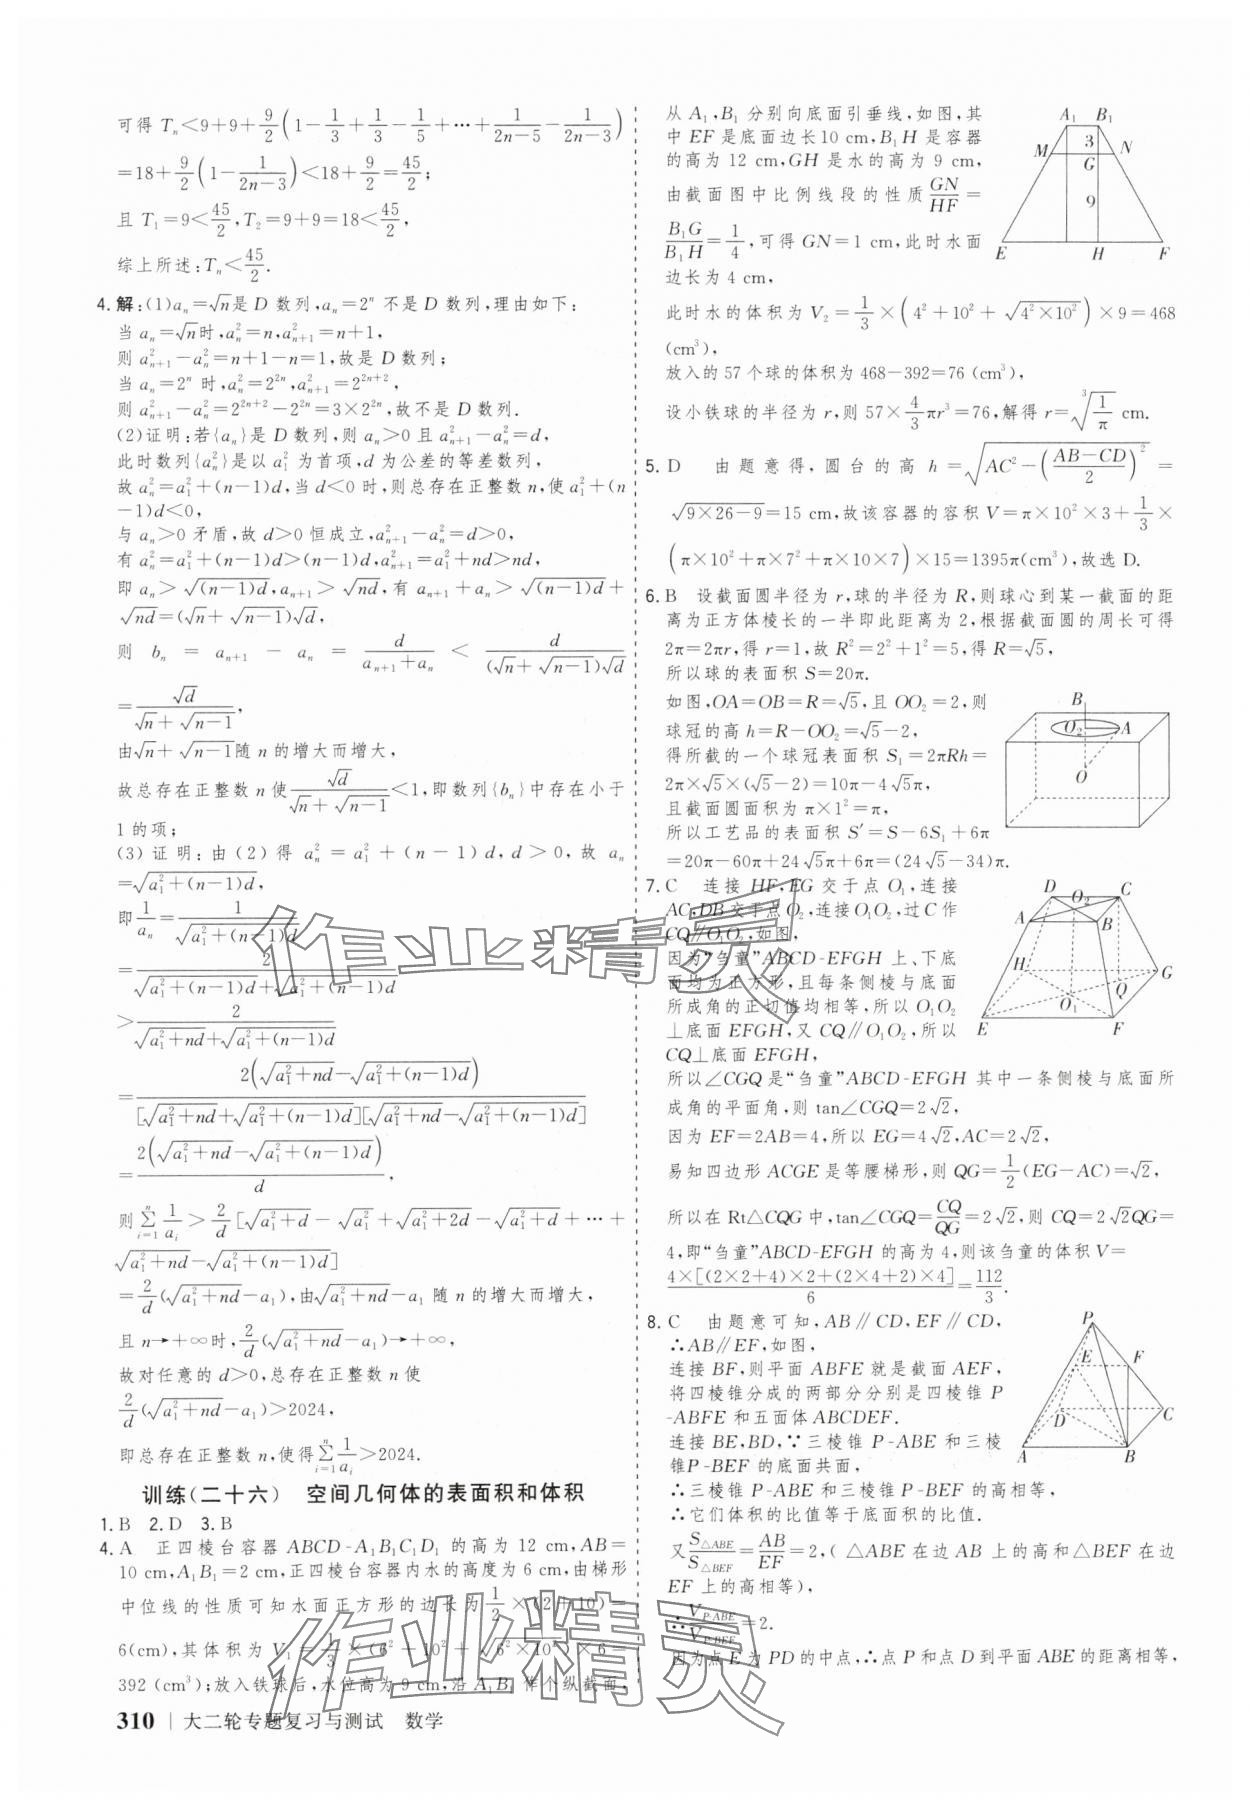 可得 Tₙ<9+9+9/2(1-1/3+1/3-1/5+…+1/(2n-5)-1/(2n-3))
=18+9/2(1-1/(2n-3))<18+9/2=45/2;
且 T₁=9<45/2,T₂=9+9=18<45/2,
综上所述:Tₙ<45/2.
4.解:(1)aₙ=√n是 D 数列,aₙ=2ⁿ 不是 D 数列,理由如下:
当 aₙ=√n时,aₙ²=n,aₙ₊₁²=n+1,
则 aₙ₊₁²-aₙ²=n+1-n=1,故是 D 数列;
当 aₙ=2ⁿ 时,aₙ²=2²ⁿ,aₙ₊₁²=2²ⁿ⁺²,
则 aₙ₊₁²-aₙ²=2²ⁿ⁺²-2²ⁿ=3×2²ⁿ,故不是 D 数列.
(2)证明:若{aₙ}是 D 数列,则 aₙ>0 且 aₙ₊₁²-aₙ²=d,
此时数列{aₙ²}是以 a₁² 为首项,d 为公差的等差数列,
故 aₙ²=a₁²+(n-1)d,当 d<0 时,则总存在正整数 n,使 a₁²+(n
-1)d<0,
与 aₙ>0 矛盾,故 d>0 恒成立,aₙ₊₁²-aₙ²=d>0,
有 aₙ²=a₁²+(n-1)d>(n-1)d,aₙ₊₁²=a₁²+nd>nd,
即 aₙ>√((n-1)d),aₙ₊₁>√(nd),有 aₙ₊₁+aₙ>√((n-1)d)+
√(nd)=(√n+√(n-1))√d,
则 bₙ=aₙ₊₁-aₙ=d/(aₙ₊₁+aₙ)<d/((√n+√(n-1))√d)
=√d/(√n+√(n-1)),
由√n+√(n-1)随 n 的增大而增大,
故总存在正整数 n 使√d/(√n+√(n-1))<1,即数列{bₙ}中存在小于
1 的项;
(3)证明:由(2)得 aₙ²=a₁²+(n-1)d,d>0,故 aₙ
=√(a₁²+(n-1)d),
即1/aₙ=1/√(a₁²+(n-1)d)
=2/(√(a₁²+(n-1)d)+√(a₁²+(n-1)d))
>2/(√(a₁²+nd)+√(a₁²+(n-1)d))
=2(√(a₁²+nd)-√(a₁²+(n-1)d))/([√(a₁²+nd)+√(a₁²+(n-1)d)][√(a₁²+nd)-√(a₁²+(n-1)d)])
=2(√(a₁²+nd)-√(a₁²+(n-1)d))/d,
则 Σⁿᵢ₌₁ 1/aᵢ>2/d[√(a₁²+d)-√(a₁²)+√(a₁²+2d)-√(a₁²+d)+…+
√(a₁²+nd)-√(a₁²+(n-1)d)]
=2/d(√(a₁²+nd)-a₁),由√(a₁²+nd)-a₁ 随 n 的增大而增大,
且 n→+∞时,2/d(√(a₁²+nd)-a₁)→+∞,
故对任意的 d>0,总存在正整数 n 使
2/d(√(a₁²+nd)-a₁)>2024,
即总存在正整数 n,使得Σⁿᵢ₌₁ 1/aᵢ>2024.
训练(二十六) 空间几何体的表面积和体积
1.B 2.D 3.B
4.A 正四棱台容器 ABCD-A₁B₁C₁D₁ 的高为 12 cm,AB=
10 cm,A₁B₁=2 cm,正四棱台容器内水的高度为 6 cm,由梯形
中位线的性质可知水面正方形的边长为1/2×(2+10)=
6(cm),其体积为 V₁=1/3×(6²+10²+√(6²×10²))×6=
392 (cm³);放入铁球后,水位高为 9 cm,沿 A₁B₁ 作个纵截面,
310 | 大二轮专题复习与测试 数学
从 A₁,B₁ 分别向底面引垂线,如图,其
中 EF 是底面边长10 cm,B₁H 是容器
的高为 12 cm,GH 是水的高为 9 cm,
由截面图中比例线段的性质GN/HF=
B₁G/B₁H=1/4,可得 GN=1 cm,此时水面
边长为 4 cm,
A₁ B₁
3
M G N
9
E H F
此时水的体积为 V₂=1/3×(4²+10²+√(4²×10²))×9=468
(cm³),
放入的 57 个球的体积为 468-392=76 (cm³),
设小铁球的半径为 r,则 57×4/3πr³=76,解得 r=³√(1/π) cm.
5.D 由题意得,圆台的高 h=√(AC²-((AB-CD)/2)²)=
√(9×26-9)=15 cm,故该容器的容积 V=π×10²×3+1/3×
(π×10²+π×7²+π×10×7)×15=1395π(cm³),故选 D.
6.B 设截面圆半径为 r,球的半径为 R,则球心到某一截面的距
离为正方体棱长的一半即此距离为 2,根据截面圆的周长可得
2π=2πr,得 r=1,故 R²=2²+1²=5,得 R=√5,
所以球的表面积 S=20π.
如图,OA=OB=R=√5,且 OO₂=2,则
球冠的高 h=R-OO₂=√5-2,
得所截的一个球冠表面积 S₁=2πRh=
2π×√5×(√5-2)=10π-4√5π,
且截面圆面积为 π×1²=π,
所以工艺品的表面积 S′=S-6S₁+6π
=20π-60π+24√5π+6π=(24√5-34)π.
B
O₂ A
O
7.C 连接 HF,EG 交于点 O₁,连接
AC,DB 交于点 O₂,连接O₁O₂,过 C 作
CQ∥O₁O₂,如图,
因为“刍童”ABCD-EFGH 上、下底
面均为正方形,且每条侧棱与底面
所成角的正切值均相等,所以 O₁O₂
⊥底面 EFGH,又 CQ∥O₁O₂,所以
CQ⊥底面 EFGH,
D O₂ C
A B
H G
Q
O₁
E F
所以∠CGQ 是“刍童”ABCD-EFGH 其中一条侧棱与底面所
成角的平面角,则 tan∠CGQ=2√2,
因为 EF=2AB=4,所以 EG=4√2,AC=2√2,
易知四边形 ACGE 是等腰梯形,则 QG=1/2(EG-AC)=√2,
所以在 Rt△CQG 中,tan∠CGQ=CQ/QG=2√2,则 CQ=2√2QG=
4,即“刍童”ABCD-EFGH 的高为 4,则该刍童的体积 V=
4×[(2×2+4)×2+(2×4+2)×4]/6=112/3.
8.C 由题意可知,AB∥CD,EF∥CD,
∴AB∥EF,如图,
连接 BF,则平面 ABFE 就是截面 AEF,
将四棱锥分成的两部分分别是四棱锥 P
-ABFE 和五面体ABCDEF.
连接 BE,BD,∵三棱锥 P-ABE 和三棱
锥P-BEF 的底面共面,
P
E F
D C
A B
∴三棱锥 P-ABE 和三棱锥 P-BEF 的高相等,
∴它们体积的比值等于底面积的比值.
又S△ABE/S△BEF=AB/EF=2,(△ABE 在边 AB 上的高和△BEF 在边
EF 上的高相等),
∴V_P-ABE/V_P-BEF=2.
因为点 E 为 PD 的中点,∴点 P 和点 D 到平面 ABE 的距离相等,
作业精灵
作业精灵